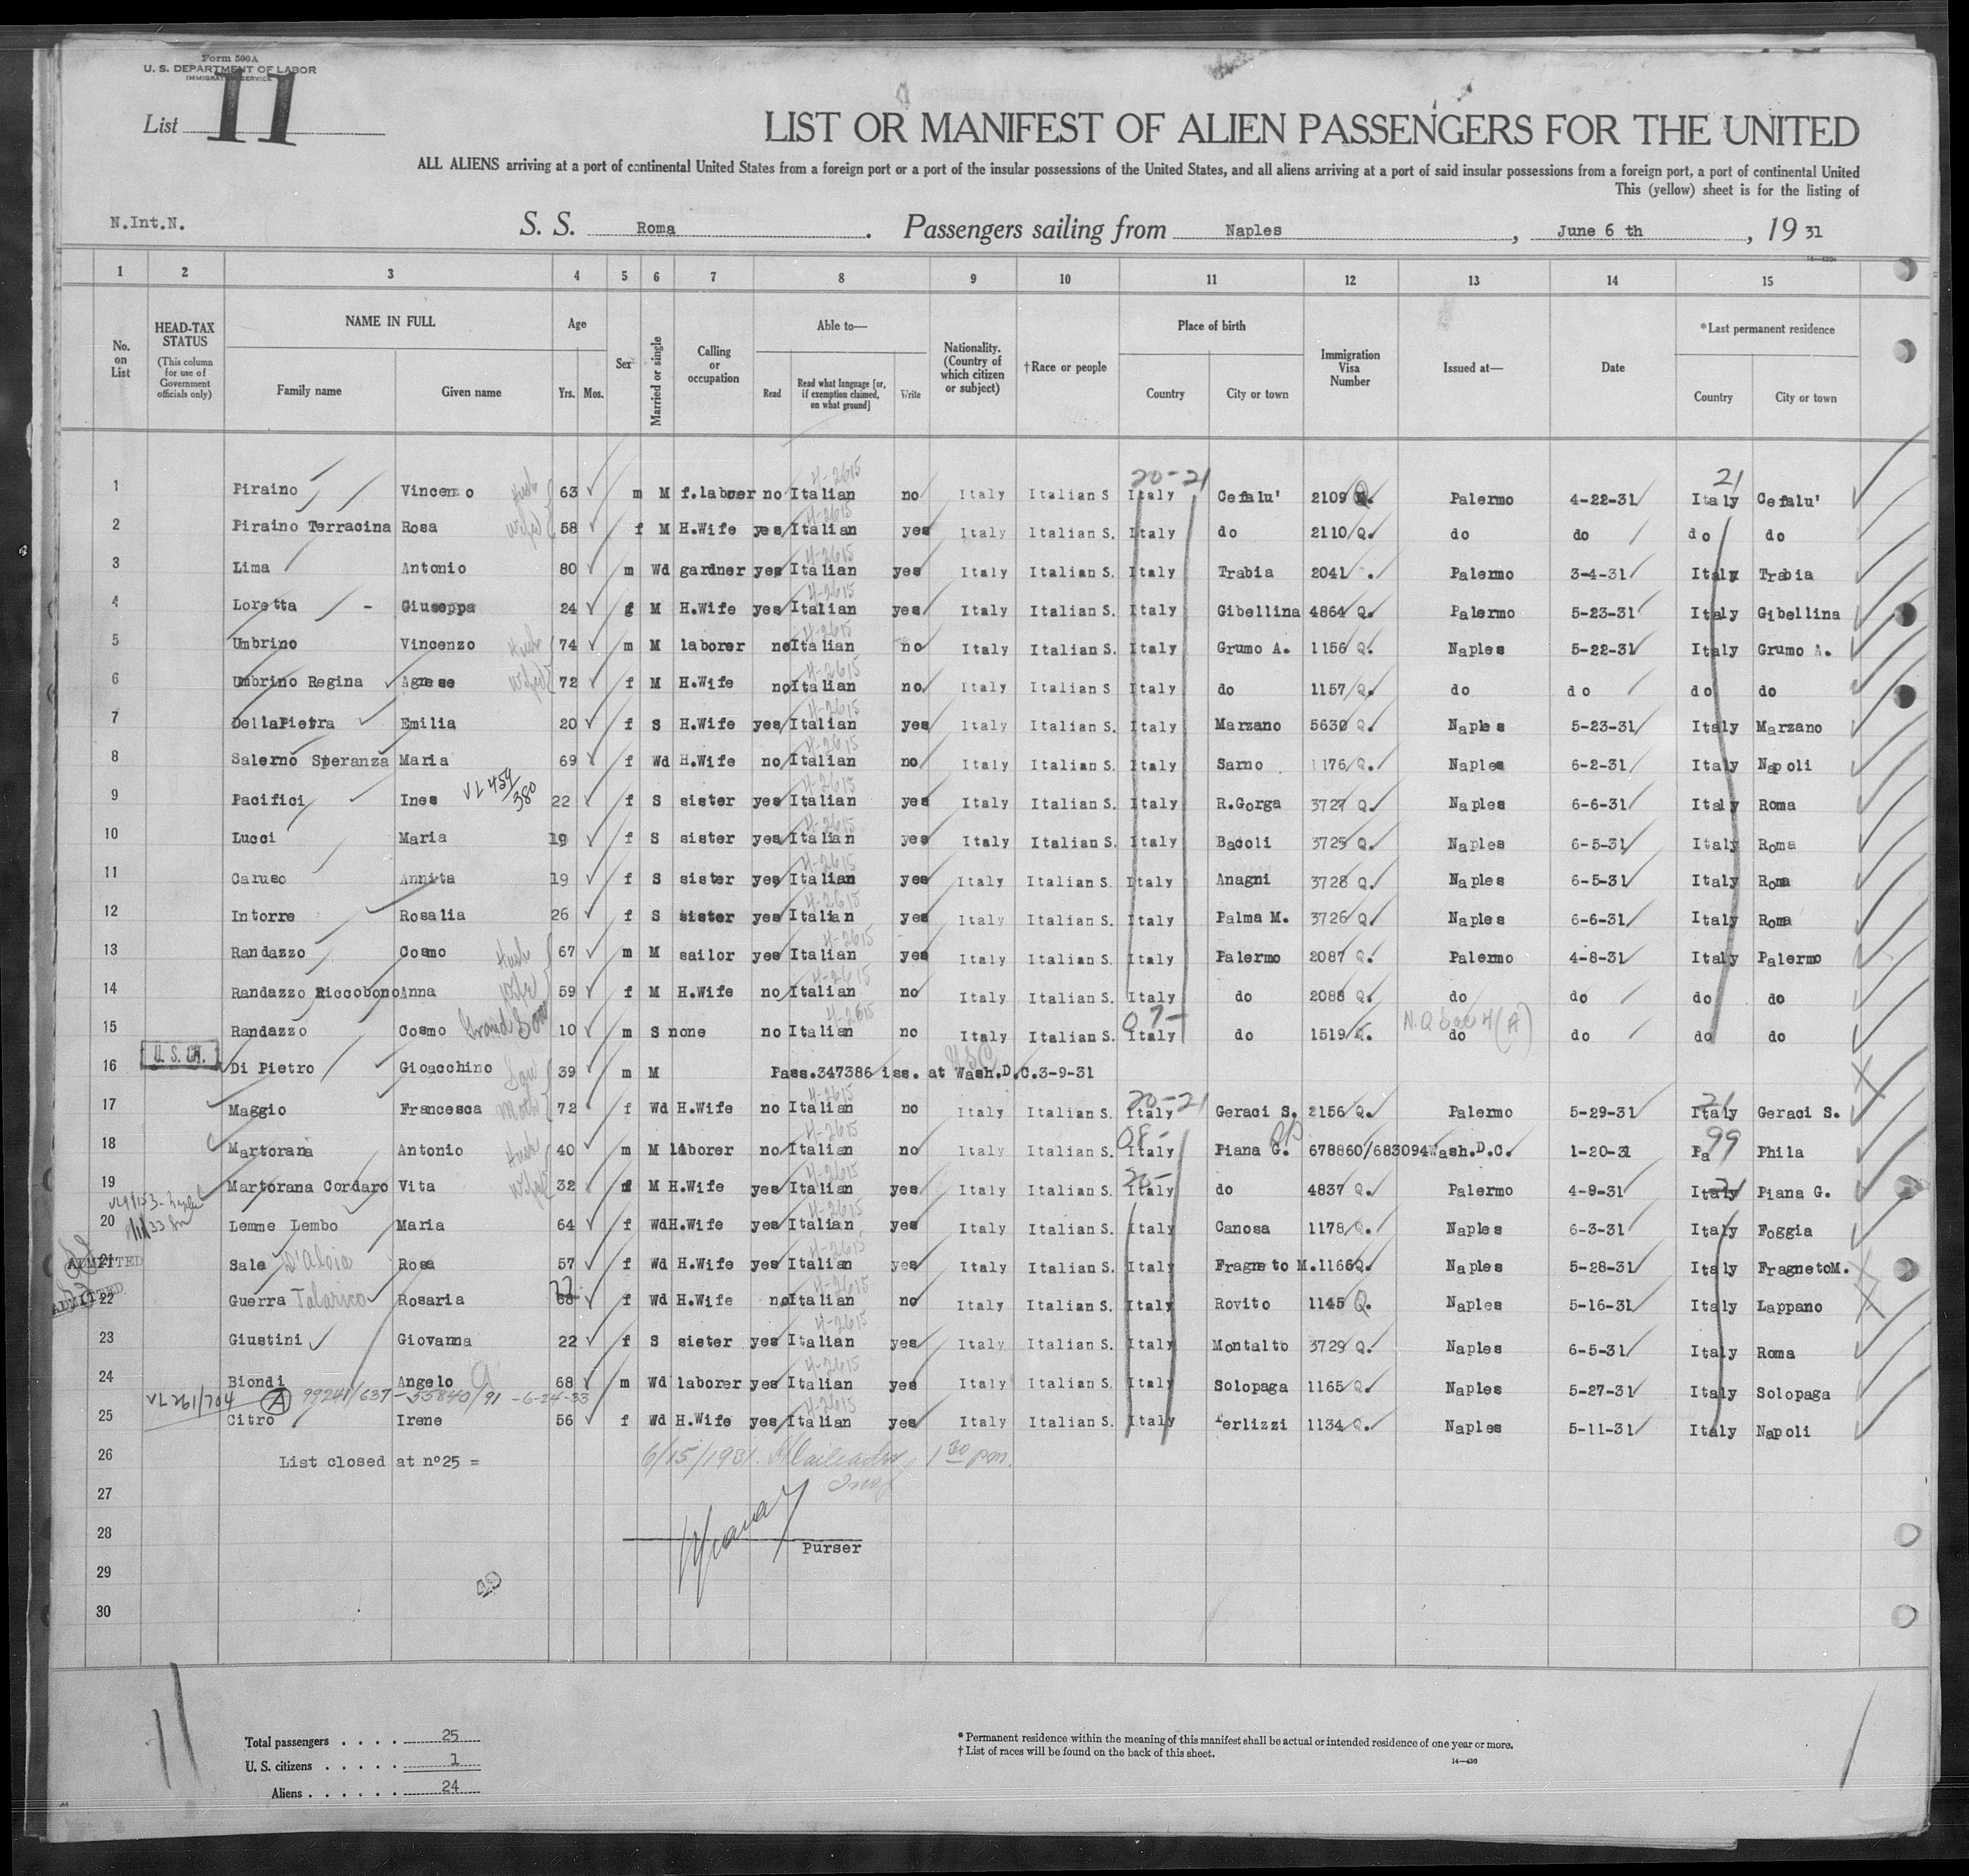 Form 500A
U. S. DEPARTMENT OF LABOR
IMMIGRATION SERVICE
List 11
LIST OR MANIFEST OF ALIEN PASSENGERS FOR THE UNITED
ALL ALIENS arriving at a port of continental United States from a foreign port or a port of the insular possessions of the United States, and all aliens arriving at a port of said insular possessions from a foreign port, a port of continental United
This (yellow) sheet is for the listing of
N.Int.N. S. S. Roma . Passengers sailing from Naples , June 6 th , 19 31
1 2 3 4 5 6 7 8 9 10 11 12 13 14 15
No. on List
HEAD-TAX STATUS (This column for use of Government officials only)
NAME IN FULL Family name Given name
Age Yrs. Mos.
Sex
Married or single
Calling or occupation
Able to— Read Read what language [or, if exemption claimed, on what ground] Write
Nationality. (Country of which citizen or subject)
†Race or people
Place of birth Country City or town
Immigration Visa Number
Issued at—
Date
*Last permanent residence Country City or town
20-21 21
1 Piraino Vincenzo Husb 63 m M f.laborer no Italian 4-2615 no Italy Italian S Italy Cefalu' 2109 Q. Palermo 4-22-31 Italy Cefalu'
2 Piraino Terracina Rosa Wife 58 f M H.Wife yes Italian 4-2615 yes Italy Italian S. Italy do 2110 Q. do do do do
3 Lima Antonio 80 m Wd gardner yes Italian 4-2615 yes Italy Italian S. Italy Trabia 2041 . Palermo 3-4-31 Italy Trabia
4 Loretta - Giuseppa 24 f M H.Wife yes Italian 4-2615 yes Italy Italian S. Italy Gibellina 4864 Q. Palermo 5-23-31 Italy Gibellina
5 Umbrino Vincenzo Husb 74 m M laborer no Italian 4-2615 no Italy Italian S. Italy Grumo A. 1156 Q. Naples 5-22-31 Italy Grumo A.
6 Umbrino Regina Agnese Wife 72 f M H.Wife no Italian 4-2615 no Italy Italian S Italy do 1157 Q. do do do do
7 DellaPietra Emilia 20 f S H.Wife yes Italian 4-2615 yes Italy Italian S. Italy Marzano 5630 Q. Naples 5-23-31 Italy Marzano
8 Salerno Speranza Maria 69 f Wd H.Wife no Italian 4-2615 no Italy Italian S. Italy Sarno 1176 Q. Naples 6-2-31 Italy Napoli
9 Pacifici Ines VL 454/380 22 f S sister yes Italian 4-2615 yes Italy Italian S. Italy R.Gorga 3727 Q. Naples 6-6-31 Italy Roma
10 Lucci Maria 19 f S sister yes Italian 4-2615 yes Italy Italian S. Italy Bacoli 3725 Q. Naples 6-5-31 Italy Roma
11 Caruso Annita 19 f S sister yes Italian 4-2615 yes Italy Italian S. Italy Anagni 3728 Q. Naples 6-5-31 Italy Roma
12 Intorre Rosalia 26 f S sister yes Italian 4-2615 yes Italy Italian S. Italy Palma M. 3726 Q. Naples 6-6-31 Italy Roma
13 Randazzo Cosmo Husb 67 m M sailor yes Italian 4-2615 yes Italy Italian S. Italy Palermo 2087 Q. Palermo 4-8-31 Italy Palermo
14 Randazzo Riccobono Anna Wife 59 f M H.Wife no Italian 4-2615 no Italy Italian S. Italy do 2088 Q. do do do do
07- N.Q (A)
15 Randazzo Cosmo Grand Son 10 m S none no Italian 4-2615 no Italy Italian S. Italy do 1519 Q. do do do do
U. S. CIT.
16 Di Pietro Gioacchino Son 39 m M Pass.347386 iss. at Wash.D.C.3-9-31 USC
20-21 21
17 Maggio Francesca Moth 72 f Wd H.Wife no Italian 4-2615 no Italy Italian S. Italy Geraci S. 2156 Q. Palermo 5-29-31 Italy Geraci S.
08- RP 99
18 Martorana Antonio Husb 40 m M laborer no Italian 4-2615 no Italy Italian S. Italy Piana G. 678860/683094 Wash.D.C. 1-20-31 Pa Phila
20- 21
19 Martorana Cordaro Vita Wife 32 f M H.Wife yes Italian 4-2615 yes Italy Italian S. Italy do 4837 Q. Palermo 4-9-31 Italy Piana G.
20 Lemme Lembo Maria 64 f Wd H.Wife yes Italian 4-2615 yes Italy Italian S. Italy Canosa 1178 Q. Naples 6-3-31 Italy Foggia
ADMITTED 21 Sale D'Aloia Rosa 57 f Wd H.Wife yes Italian 4-2615 yes Italy Italian S. Italy Fragneto M. 1166 Q. Naples 5-28-31 Italy Fragneto M.
ADMITTED 22 Guerra Talarico Rosaria 77 68 f Wd H.Wife no Italian 4-2615 no Italy Italian S. Italy Rovito 1145 Q. Naples 5-16-31 Italy Lappano
23 Giustini Giovanna 22 f S sister yes Italian 4-2615 yes Italy Italian S. Italy Montalto 3729 Q. Naples 6-5-31 Italy Roma
24 Biondi Angelo 68 m Wd laborer yes Italian 4-2615 yes Italy Italian S. Italy Solopaga 1165 Q. Naples 5-27-31 Italy Solopaga
VL 261/704 (A) 99241/637-55840/91 -6-24-33
25 Citro Irene 56 f Wd H.Wife yes Italian 4-2615 yes Italy Italian S. Italy Terlizzi 1134 Q. Naples 5-11-31 Italy Napoli
26 List closed at n°25 = 6/15/1931. 1 30 pm. Insp
27
28
Purser
29
30
11
Total passengers . . . . 25
U. S. citizens . . . . . 1
Aliens . . . . . . 24
* Permanent residence within the meaning of this manifest shall be actual or intended residence of one year or more.
† List of races will be found on the back of this sheet.
14-430